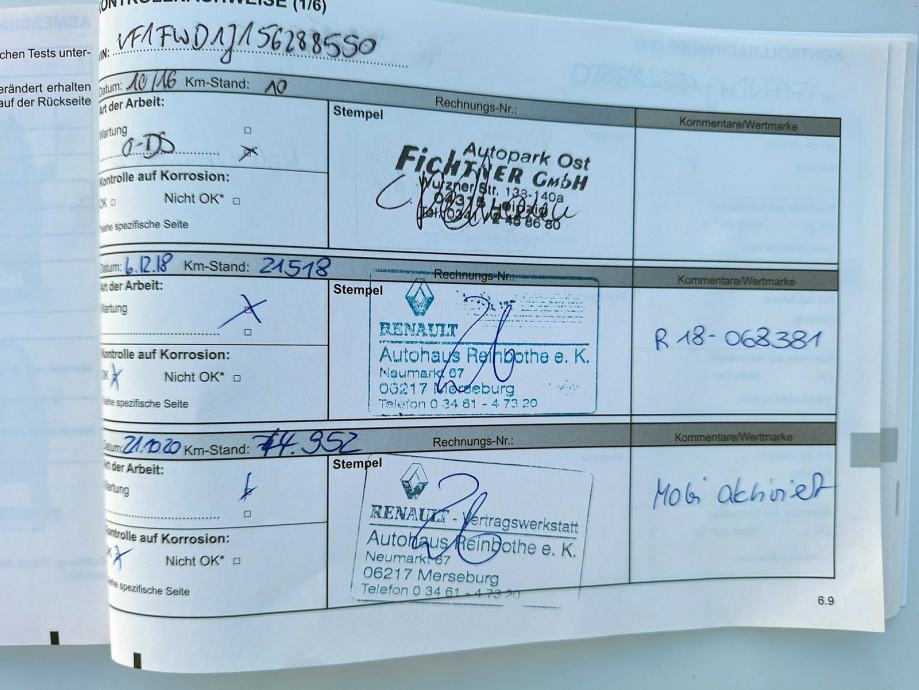 KONTROLLNACHWEISE (1/6)
chen Tests unter-
erändert erhalten
auf der Rückseite
VIN: VF1FWD1J156288550
Datum: 10/16 Km-Stand: 10
Rechnungs-Nr.:
Kommentare/Wertmarke
Art der Arbeit:
Stempel
Wartung
0-DS
Autopark Ost
FICHTNER GmbH
Wurzner Str. 133-140a
04315 Leipzig
Kontrolle auf Korrosion:
OK Nicht OK*
Siehe spezifische Seite
Datum: 6.12.18 Km-Stand: 21518
Rechnungs-Nr.:
Kommentare/Wertmarke
Art der Arbeit:
Stempel
Wartung
RENAULT
Autohaus Reinbothe e. K.
Neumarkt 67
06217 Merseburg
Telefon 0 34 61 - 4 73 20
R 18-068381
Kontrolle auf Korrosion:
OK Nicht OK*
Siehe spezifische Seite
Datum: 21.10.20 Km-Stand: 44.952
Rechnungs-Nr.:
Kommentare/Wertmarke
Art der Arbeit:
Stempel
Wartung
RENAULT - Vertragswerkstatt
Autohaus Reinbothe e. K.
Neumarkt 67
06217 Merseburg
Telefon 0 34 61 - 4 73 20
Mobi aktiviert
Kontrolle auf Korrosion:
OK Nicht OK*
Siehe spezifische Seite
6.9